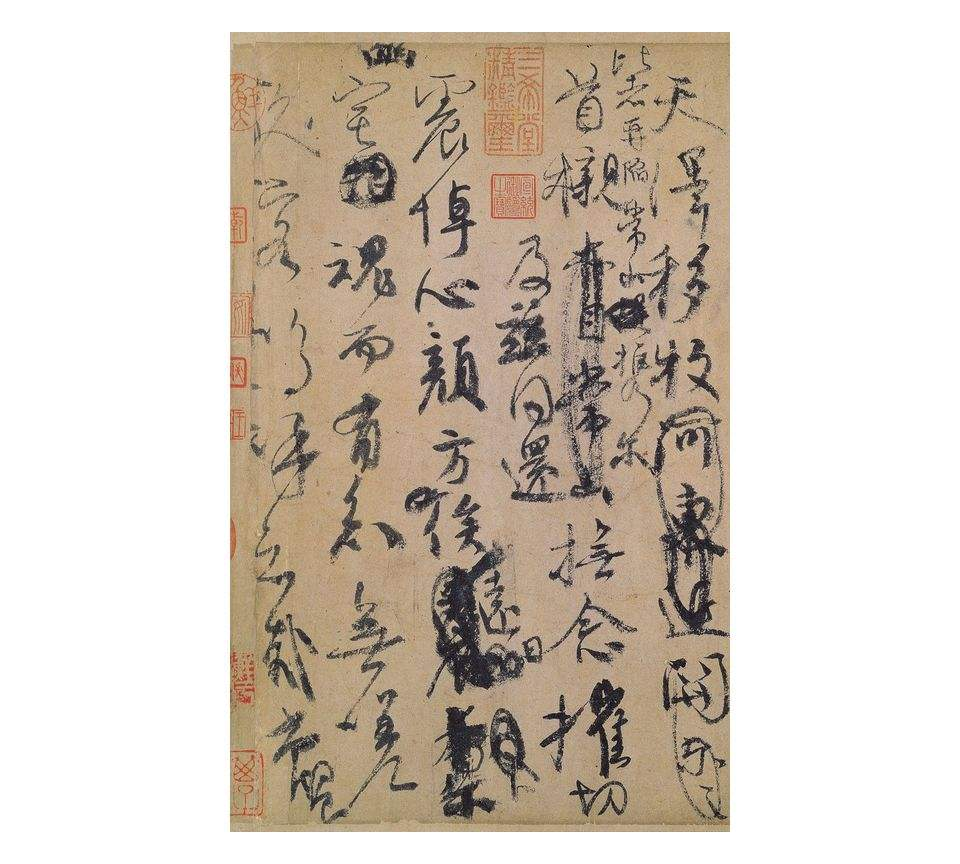 天澤移牧河東近河關泉明
比者再陷常山攜爾
首櫬亦自常山撫念摧切
及茲同還
三希堂精鑑璽
震悼心顏方俟
遠日
幽宅魂而有知無嗟
久客嗚呼哀哉尚饗